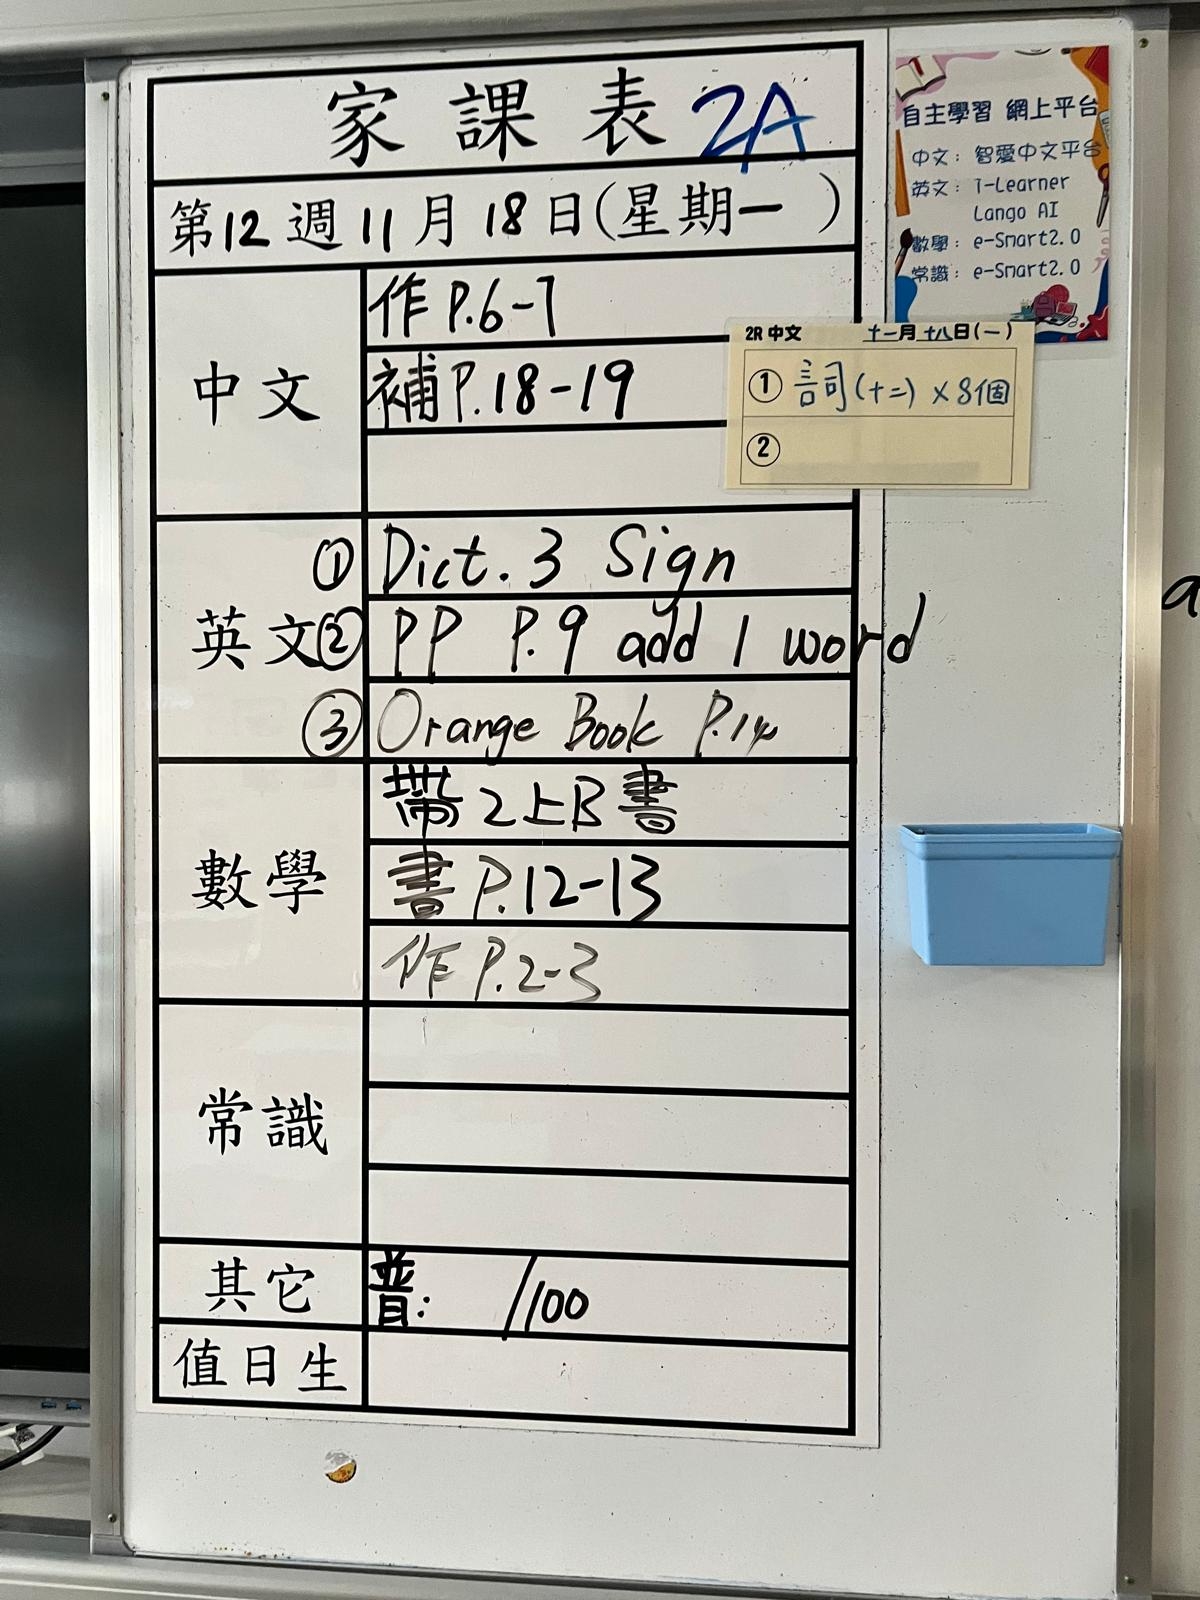 家課表 2A
第12週11月18日(星期一)
中文
作P.6-7
補P.18-19
英文
① Dict. 3 Sign
② PP P.9 add 1 word
③ Orange Book P.14
數學
帶2上B書
書P.12-13
作P.2-3
常識
其它
普: /100
值日生
自主學習 網上平台
中文: 智愛中文平台
英文: i-Learner
Lango AI
數學: e-Smart2.0
常識: e-Smart2.0
2R 中文 十一月十八日(一)
① 詞(十二) x 8個
②
a